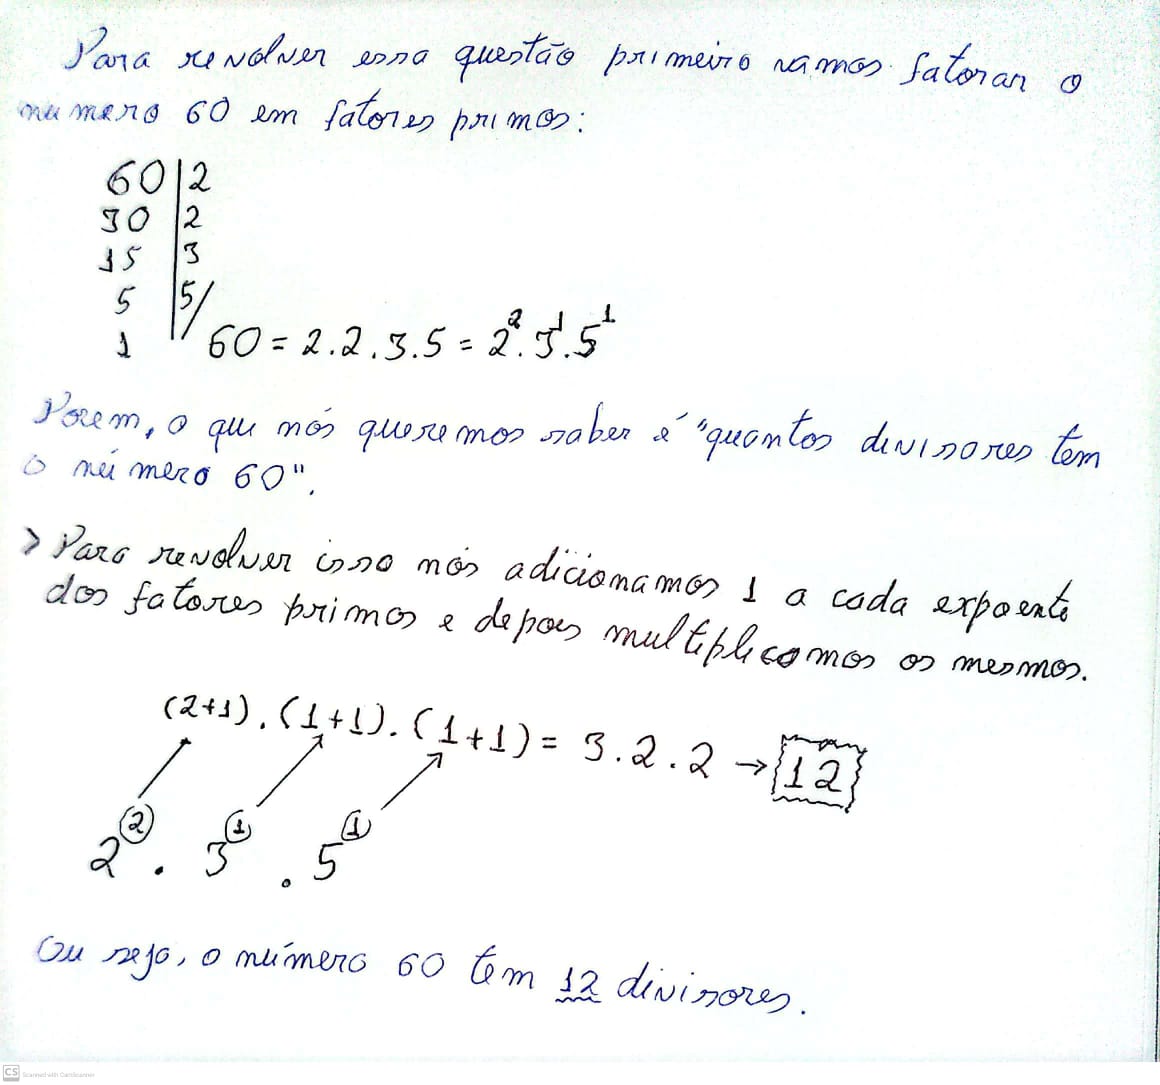 Para resolver essa questão primeiro vamos fatorar o
número 60 em fatores primos:
60|2
30|2
15|3
5|5/
1
60 = 2.2.3.5 = 2².3¹.5¹
Porem, o que nós queremos saber é "quantos divisores tem
o número 60".
> Para resolver isso nós adicionamos 1 a cada expoente
dos fatores primos e depois multiplicamos os mesmos.
(2+1).(1+1).(1+1) = 3.2.2 → 12
2².3¹.5¹
Ou seja, o número 60 tem 12 divisores.
CS Scanned with CamScanner